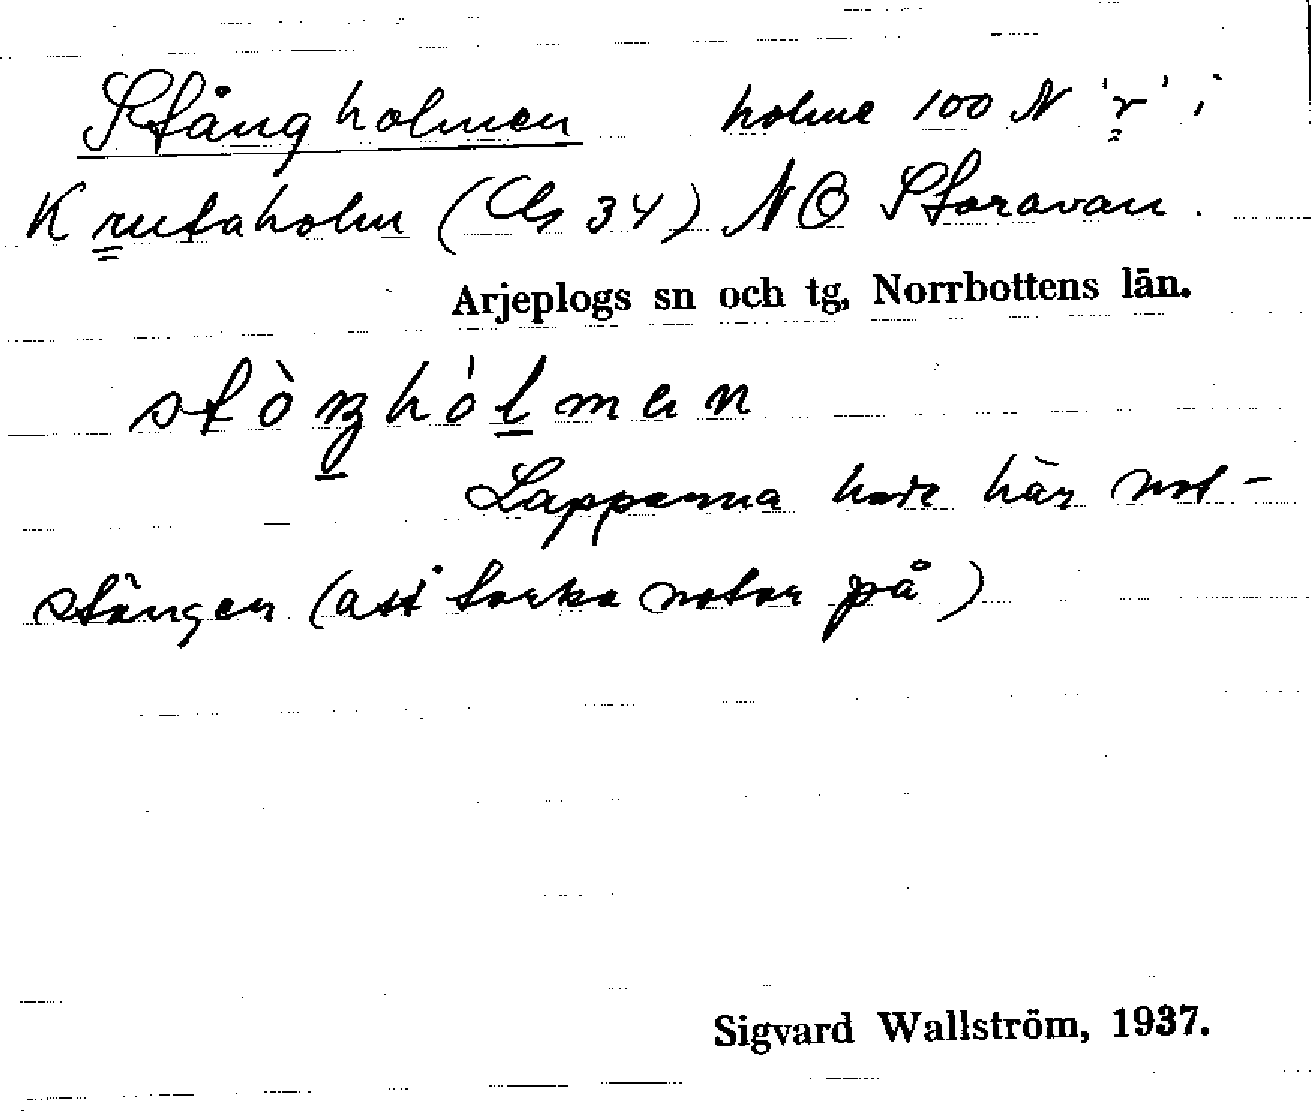 Stångholmen holme 100 N 'r' i
Krutaholm (Cls 34) NÖ Storavan.
Arjeplogs sn och tg, Norrbottens län.
stòŋhólmen
Lapparna hade här not-
stänger (att torka notar på)
Sigvard Wallström, 1937.